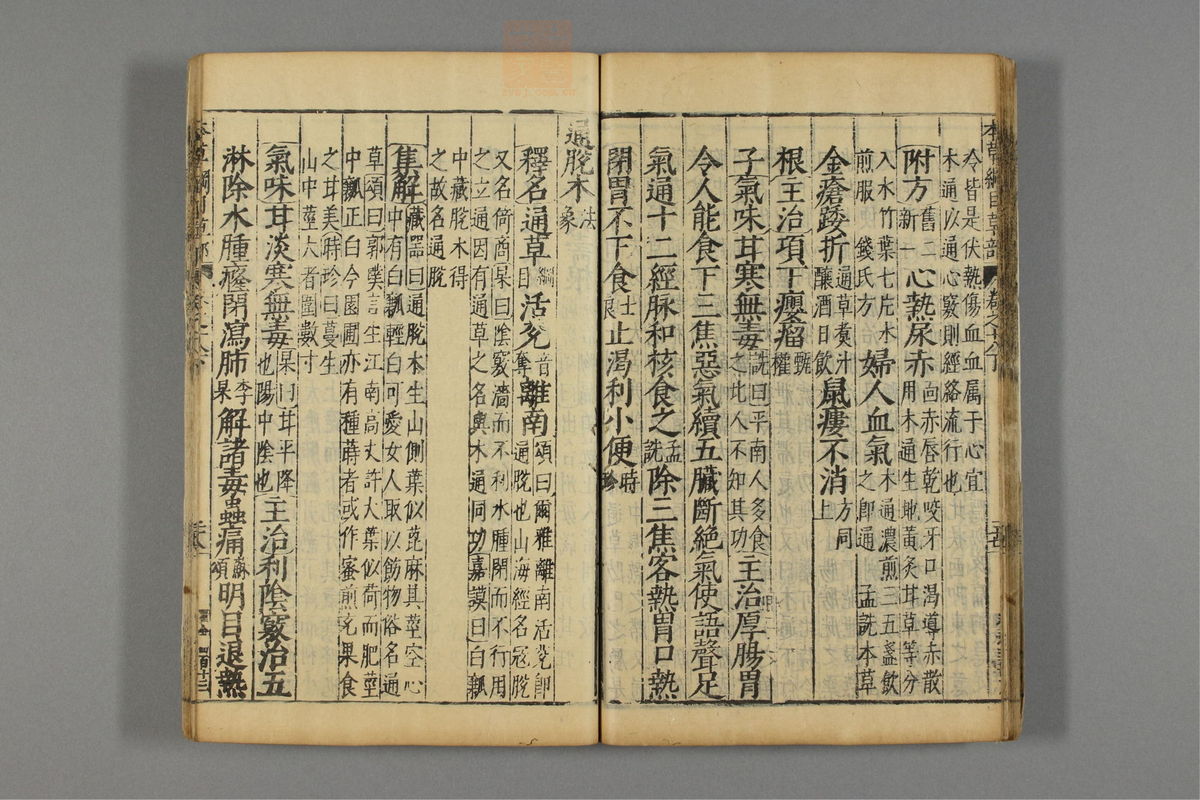 今皆是伏熱傷血血屬于心宜
木通以通心竅則經絡流行也
附方舊二新一心熱尿赤面赤唇乾咬牙口渴導赤散
用木通生地黃炙甘草等分
入水竹葉七片水
煎服 錢氏方 婦人血氣木通濃煎三五盞飲
之卽通 孟詵本草
金瘡踒折通草煮汁
釀酒日飲 鼠瘻不消方同
上
根主治項下癭瘤甄
權
子氣味甘寒無毒詵曰平南人多食
之北人不知其功主治厚腸胃
令人能食下三焦惡氣續五臟斷絕氣使語聲足
氣通十二經脉和核食之孟
詵除三焦客熱胃口熱
閉胃不下食士
良止渴利小便時
珍
通脫木法
象
釋名通草綱
目活克音
奪離南頌曰爾雅離南活克卽
通脫也山海經名冠脫
又名倚商杲曰陰竅澀而不利水腫閉而不行用
之立通因有通草之名與木通同功嘉謨曰白瓤
中藏脫木得
之故名通脫
集解藏器曰通脫木生山側葉似萆麻其莖空心
中有白瓤輕白可愛女人取以飾物俗名通
草頌曰郭璞言生江南高丈許大葉似荷而肥莖
中瓤正白今園圃亦有種蒔者或作蜜煎充果食
之甘美時珍曰蔓生
山中莖大者圍數寸
氣味甘淡寒無毒杲曰甘平降
也陽中陰也主治利陰竅治五
淋除水腫癃閉瀉肺李
杲解諸毒蟲痛蘇
頌明目退熱